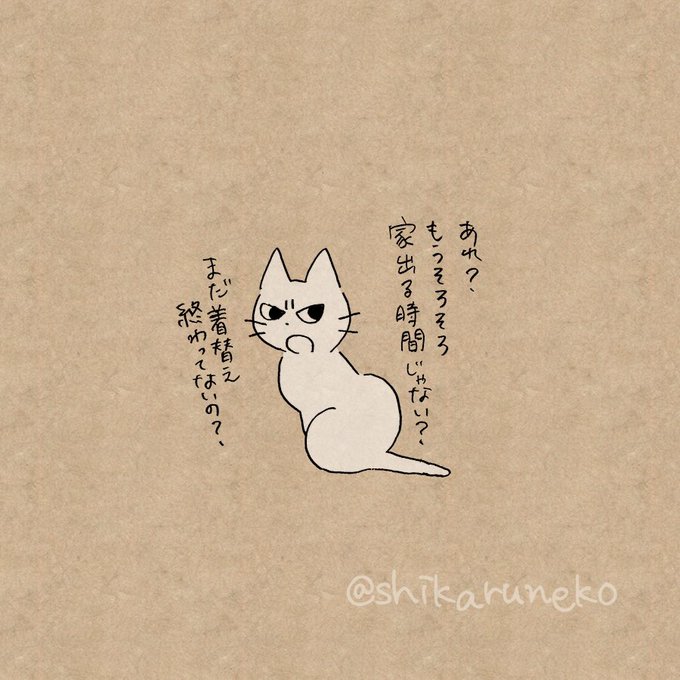 あれ？、
もうそろそろ
家出る時間じゃない？、
まだ着替え
終わってないの？、
@shikaruneko